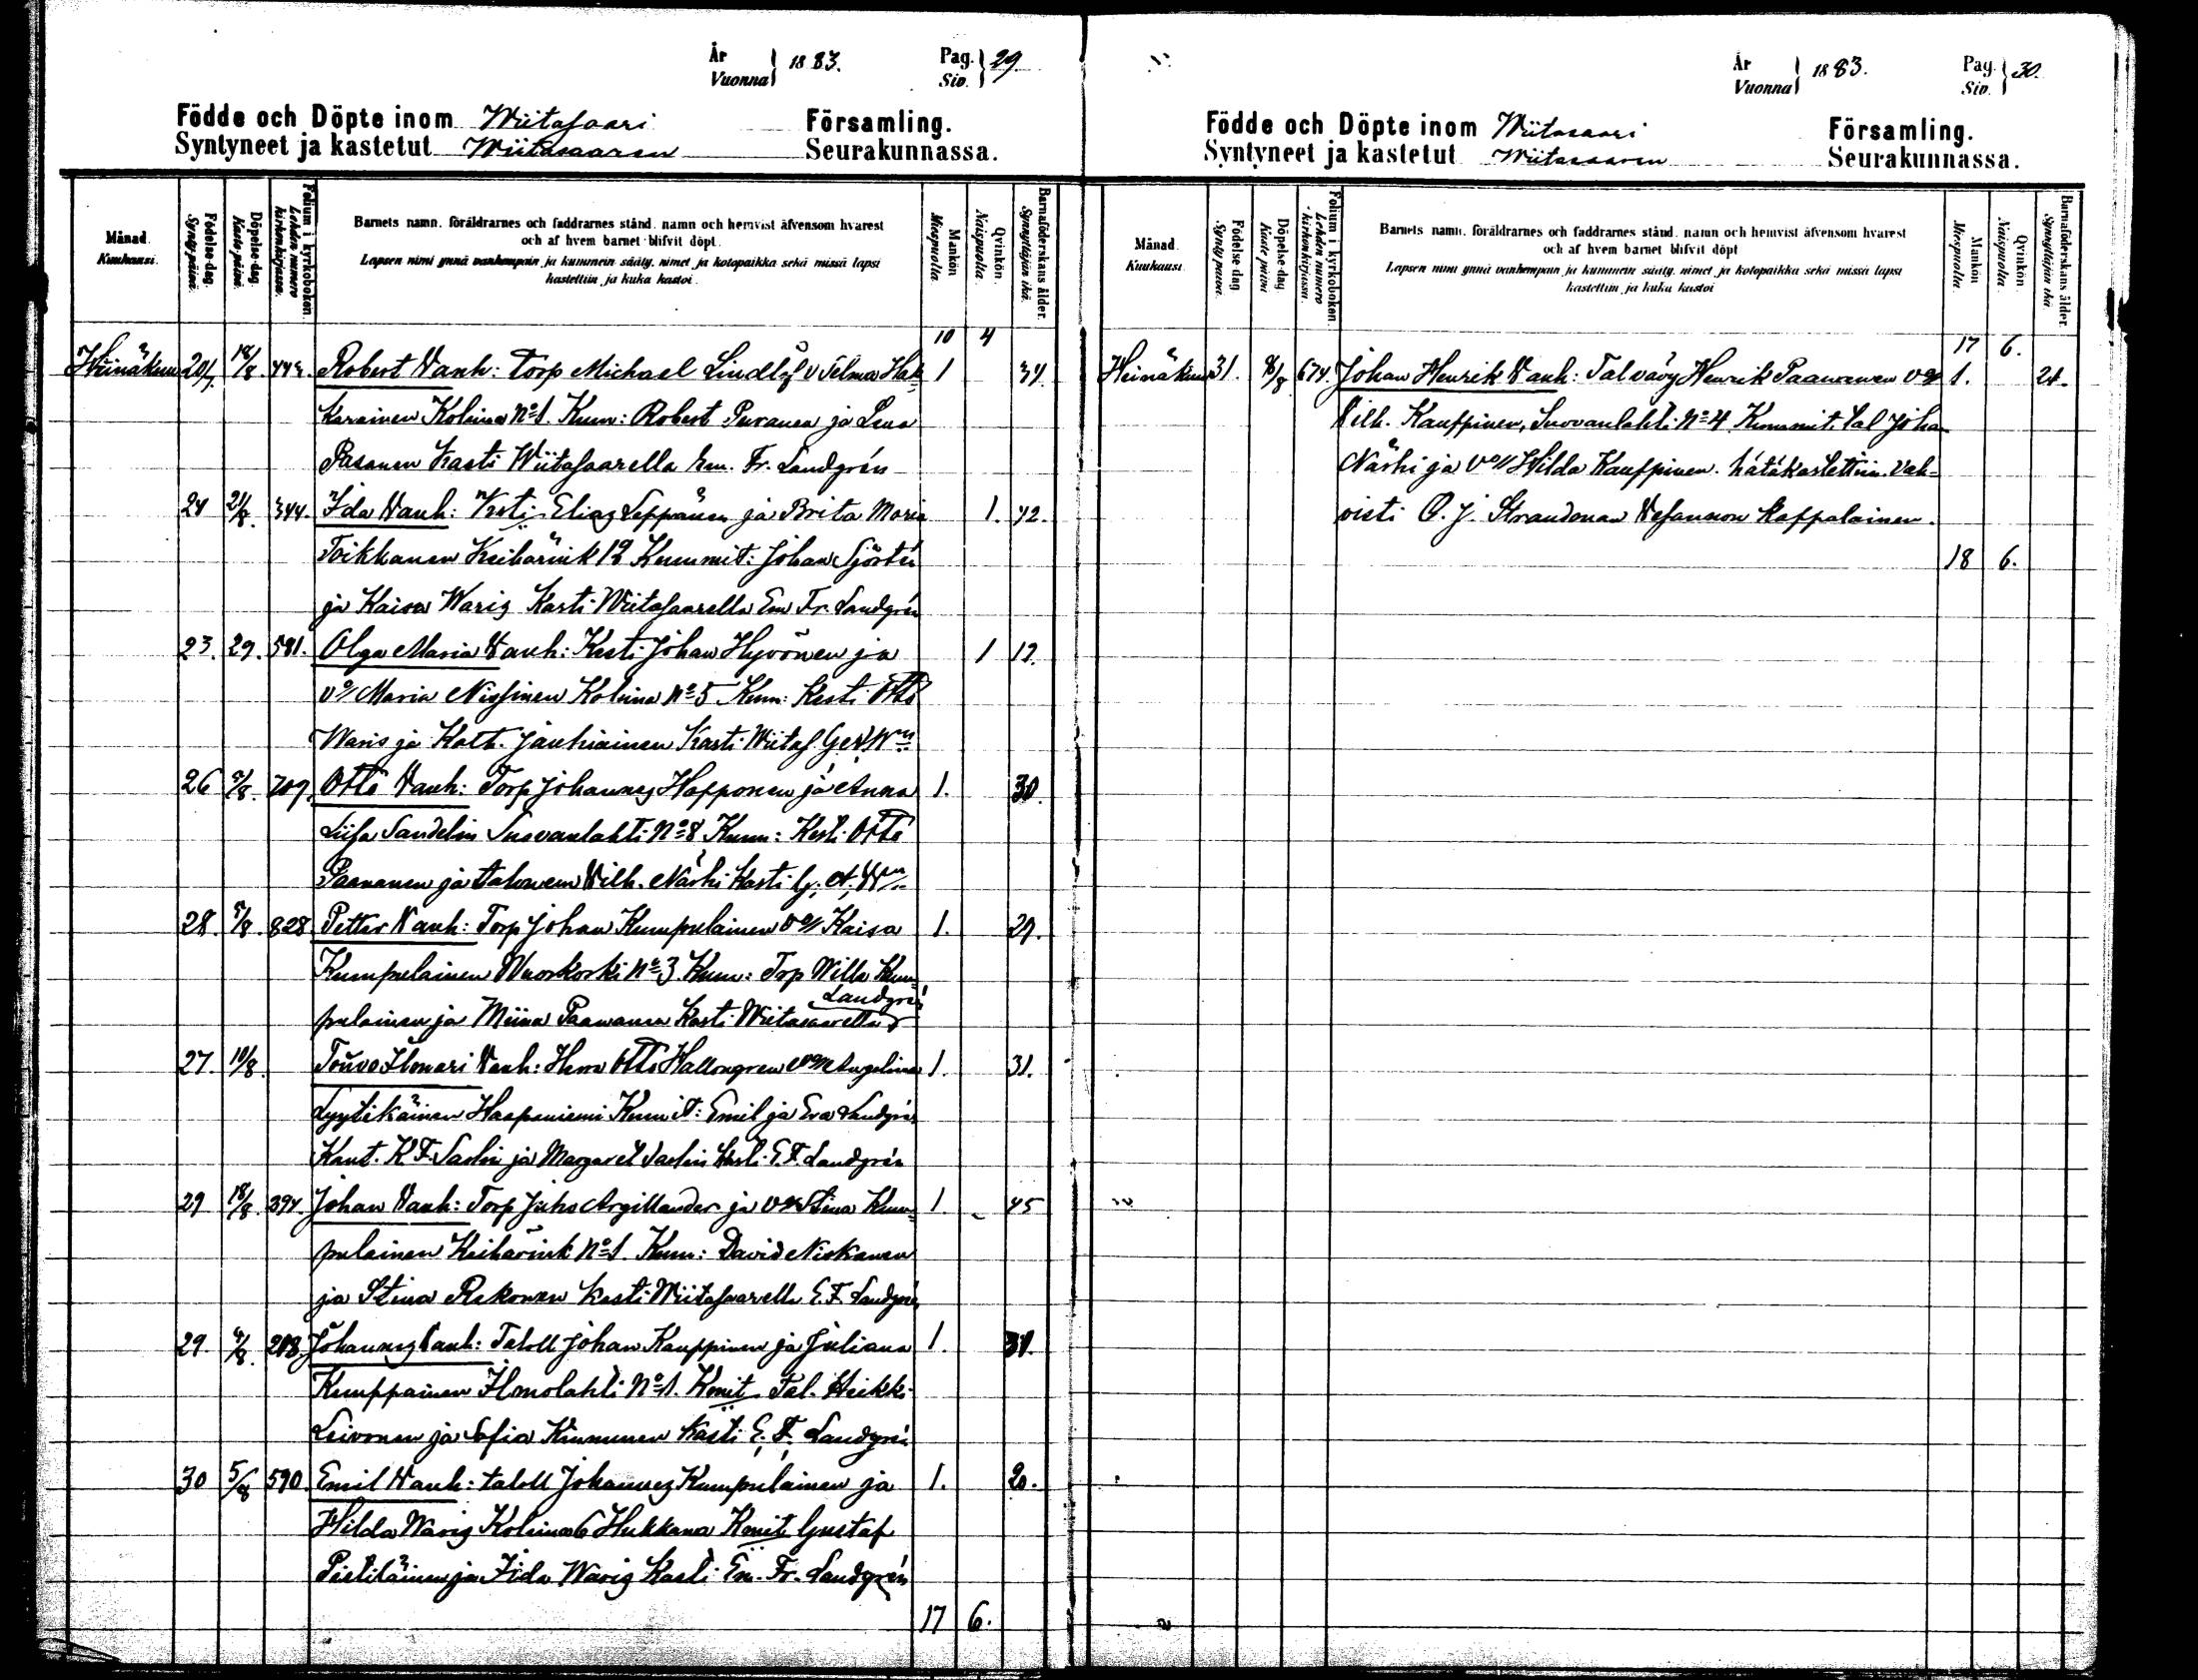 År
Vuonna 1883.
Pag.
Siv. 29.
Födde och Döpte inom Wiitasaari Församling.
Syntyneet ja kastetut Wiitasaaren Seurakunnassa.
Månad.
Kuukausi.
Födelse-dag.
Synty-päivä.
Döpelse-dag.
Kaste-päivä.
Folium i kyrkoboken.
Lehden numero
kirkonkirjassa.
Barnets namn, föräldrarnes och faddrarnes stånd, namn och hemvist äfvensom hvarest
och af hvem barnet blifvit döpt.
Lapsen nimi ynnä vanhempain ja kummein sääty, nimet ja kotopaikka sekä missä lapsi
kastettiin ja kuka kastoi.
Mankön
Miespuolta
Qvinkön.
Naispuolta.
Barnaföderskans ålder.
Synnyttäjän ikä.
10 4
Heinäkuu 24/7 18/8 443. Robert Vanh: Torp Michael Lindlöf v Selma Hak= 1 34.
karainen Kolima No 1. Kum: Robert Puranen ja Lena
Pasanen Kasti Wiitasaarella Em. Fr. Landgrén
24 21/8. 344. Ida Vanh: Kesti Elias Leppänen ja Brita Maria 1. 42.
Toikkanen Keihärink 12 Kummit: Johan Sjöstén
ja Kaisa Waris Kasti Wiitasaarella Em Fr. Landgrén
23. 29. 581. Olga Maria Vanh: Kesti Johan Hyvönen ja 1 19.
vo/ Maria Nissinen Kolima No 5 Kum: Kesti Otto
Waris ja Kath. Jauhiainen Kasti Wiitas
26 9/8. 709. Otto Vanh: Torp Johannes Happonen ja Anna 1. 30.
Liisa Sandelin Suovanlahti No 8 Kum: Kesti Otto
Paananen ja Wilh. Närhi Kasti
28. 5/8. 828. Petter Vanh: Torp Johan Kumpulainen vo/ Kaisa 1. 29.
Kumpulainen Wuoskoski No 3. Kum: Torp Wille Kum=
pulainen ja Miina Paananen Kasti Wiitasaarella Landgrén
27. 10/8. Toivo Ilmari Vanh: Herra Otto Hallongren Angelina 1. 31.
Lyytikäinen Haapaniemi Kumit: Emil ja Eva Landgrén
Kant. K. F. Saxlin ja Margaret Saxlin Kasti E. F. Landgrén
29 18/8. 394. Johan Vanh: Torp Juho Argillander ja vo Stina Kum= 1. 45
pulainen Keihärink No 1. Kum: David Niskanen
ja Stina Rekonen Kasti Wiitasaarella E. F. Landgrén
29. 4/8. 208. Johannes Vanh: Taloll Johan Kauppinen ja Juliana 1. 30.
Kumppainen Ilmolahti No 1. Kmit Tal. Heikki
Leivonen ja Sofia Kinnunen Kasti E. F. Landgrén
30 5/8 590. Emil Vanh: taloll Johannes Kumpulainen ja 1. 20.
Hilda Waris Kolima 6 Hukkana Kmit Gustaf
Pietiläinen ja Iida Waris Kasti Em. Fr. Landgrén
17 6.
År
Vuonna 1883.
Pag.
Siv. 30.
Födde och Döpte inom Wiitasaari Församling.
Syntyneet ja kastetut Wiitasaaren Seurakunnassa.
Månad.
Kuukausi
Födelse dag
Synty päivä.
Döpelse-dag
Kaste päivä
Folium i kyrkoboken.
Lehden numero
kirkonkirjassa.
Barnets namn, föräldrarnes och faddrarnes stånd, namn och hemvist äfvensom hvarest
och af hvem barnet blifvit döpt
Lapsen nimi ynnä vanhempain ja kummein sääty, nimet ja kotopaikka sekä missä lapsi
kastettiin ja kuka kastoi
Mankön
Miespuolta.
Qvinkön
Naispuolta.
Barnaföderskans ålder.
Synnyttäjän ikä.
17 6.
Heinäkuu 31. 674. Johan Henrik Vanh: Tal vävy Henrik Paananen vo 1. 24.
Vilh. Kauppinen, Suovanlahti No 4 Kummit: tal Joha
Närhi ja vo/ Hilda Kauppinen. hätäkastettiin. Vah=
visti O. J. Strandman Wesannon kappalainen.
18 6.